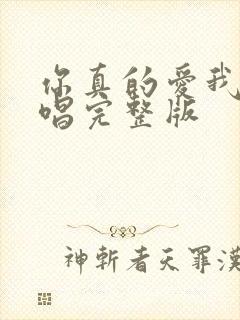 你真的愛我
唱完整版
神斬者天罪漢